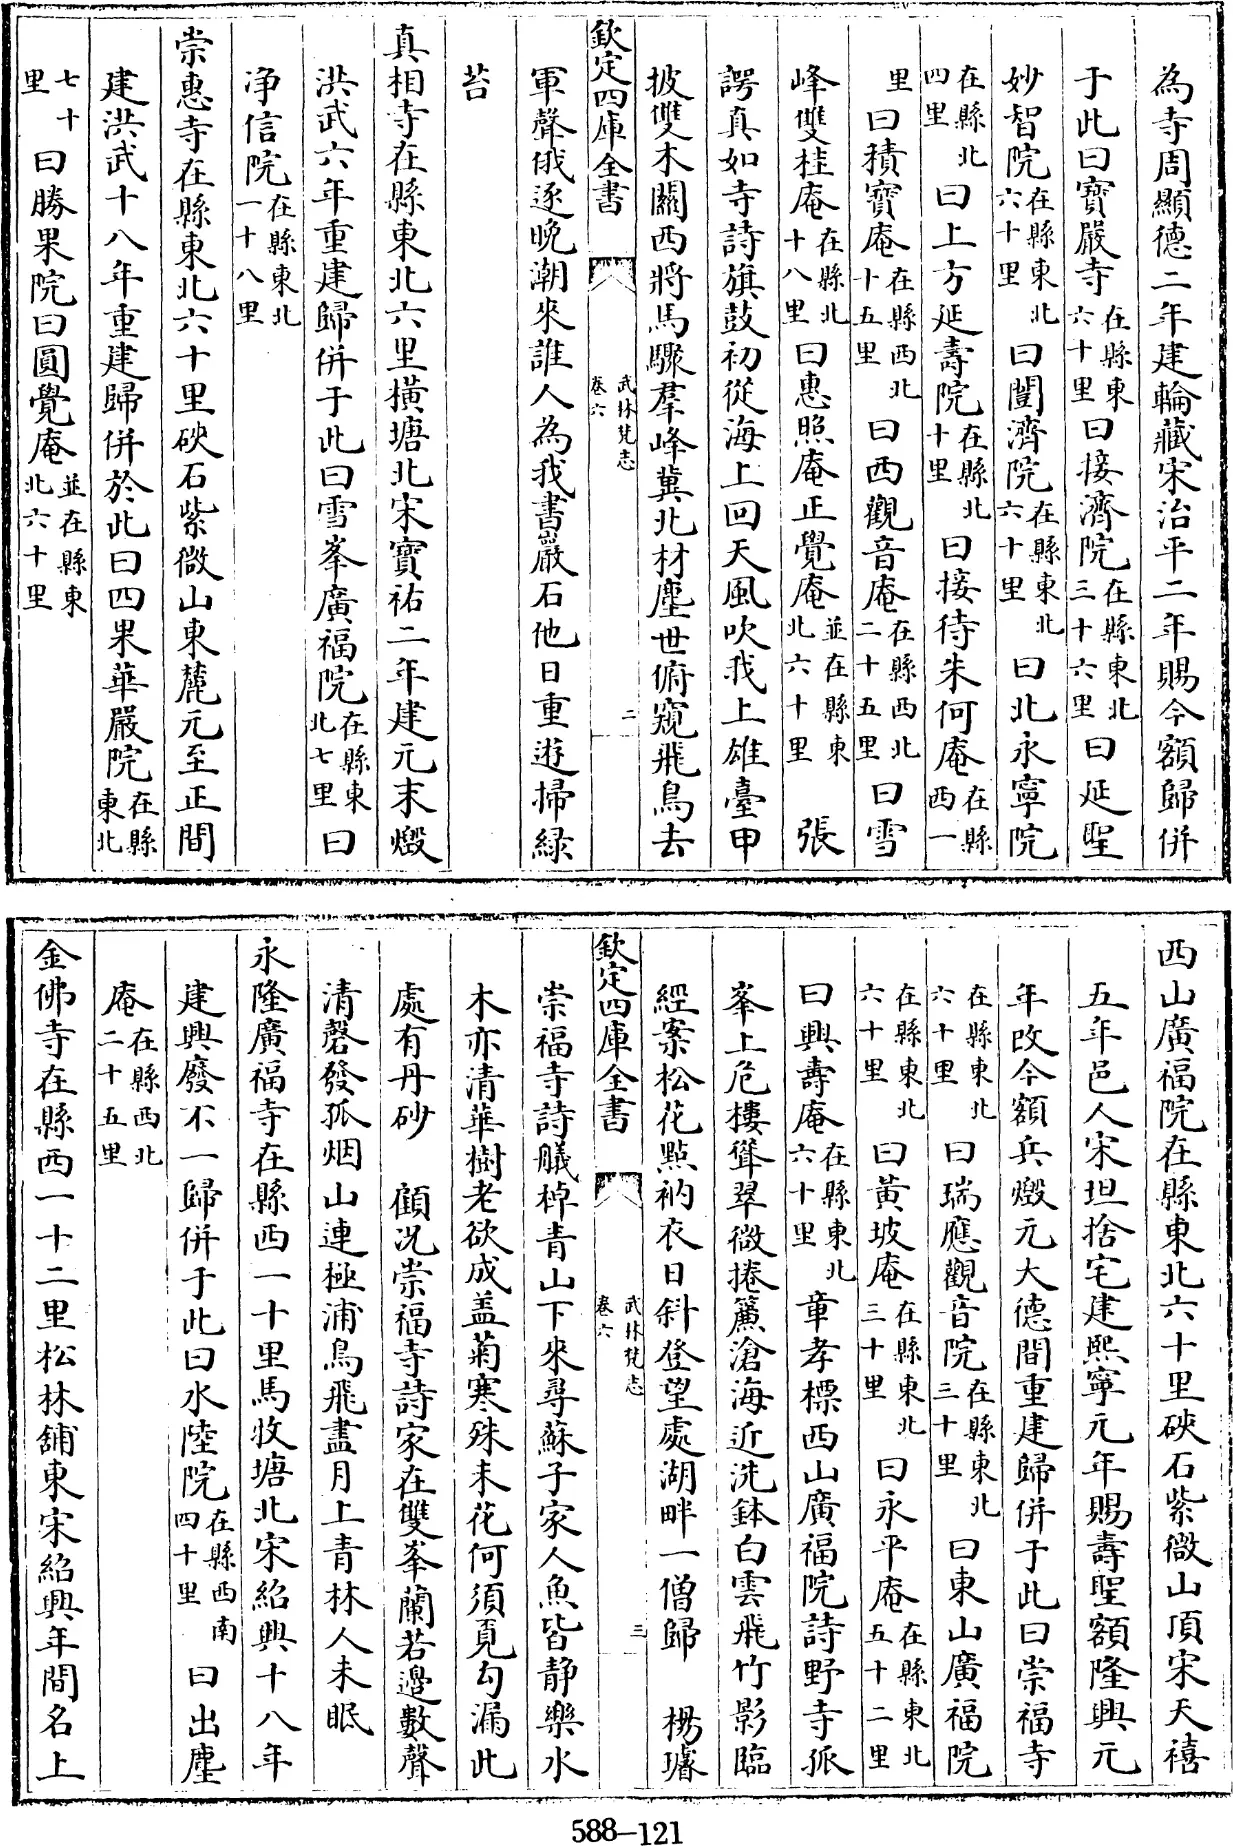 為寺周顯德二年建輪藏宋治平二年賜今額歸併
于此曰寶嚴寺在縣東六十里曰接濟院在縣東北三十六里曰延聖
妙智院在縣東北六十里曰闓濟院在縣東北六十里曰北永寧院
在縣北四里曰上方延壽院在縣北十里曰接待朱何庵在縣西一
里曰積寶庵在縣西北十五里曰西觀音庵在縣西北二十五里曰雪
峰雙桂庵在縣北十八里曰惠照庵正覺庵並在縣東北六十里 張
諤真如寺詩旗鼓初從海上回天風吹我上雄臺甲
披雙木關西將馬驟羣峰冀北材塵世俯窺飛鳥去
欽定四庫全書 武林梵志 卷六 二
軍聲俄逐晚潮來誰人為我書巖石他日重遊掃綠
苔
真相寺在縣東北六里橫塘北宋寶祐二年建元末燬
洪武六年重建歸併于此曰雪峯廣福院在縣東北七里曰
净信院在縣東北一十八里
崇惠寺在縣東北六十里硤石紫微山東麓元至正間
建洪武十八年重建歸併於此曰四果華嚴院在縣東北
七十里曰勝果院曰圓覺庵並在縣東北六十里
西山廣福院在縣東北六十里硤石紫微山頂宋天禧
五年邑人宋坦捨宅建熙寧元年賜壽聖額隆興元
年改今額兵燬元大德間重建歸併于此曰崇福寺
在縣東北六十里曰瑞應觀音院在縣東北三十里曰東山廣福院
在縣東北六十里曰黃坡庵在縣東北三十里曰永平庵在縣東北五十二里
曰興壽庵在縣東北六十里章孝標西山廣福院詩野寺孤
峯上危樓聳翠微捲簾滄海近洗鉢白雲飛竹影臨
經案松花點衲衣日斜登望處湖畔一僧歸 楊璿
欽定四庫全書 武林梵志 卷六 三
崇福寺詩艤棹青山下來尋蘇子家人魚皆靜樂水
木亦清華樹老欲成盖菊寒殊未花何須覓勾漏此
處有丹砂 顧况崇福寺詩家在雙峯蘭若邊數聲
清磬發孤烟山連極浦鳥飛盡月上青林人未眠
永隆廣福寺在縣西一十里馬牧塘北宋紹興十八年
建興廢不一歸併于此曰水陸院在縣西南四十里曰出塵
庵在縣西北二十五里
金佛寺在縣西一十二里松林舖東宋紹興年間名上
588—121